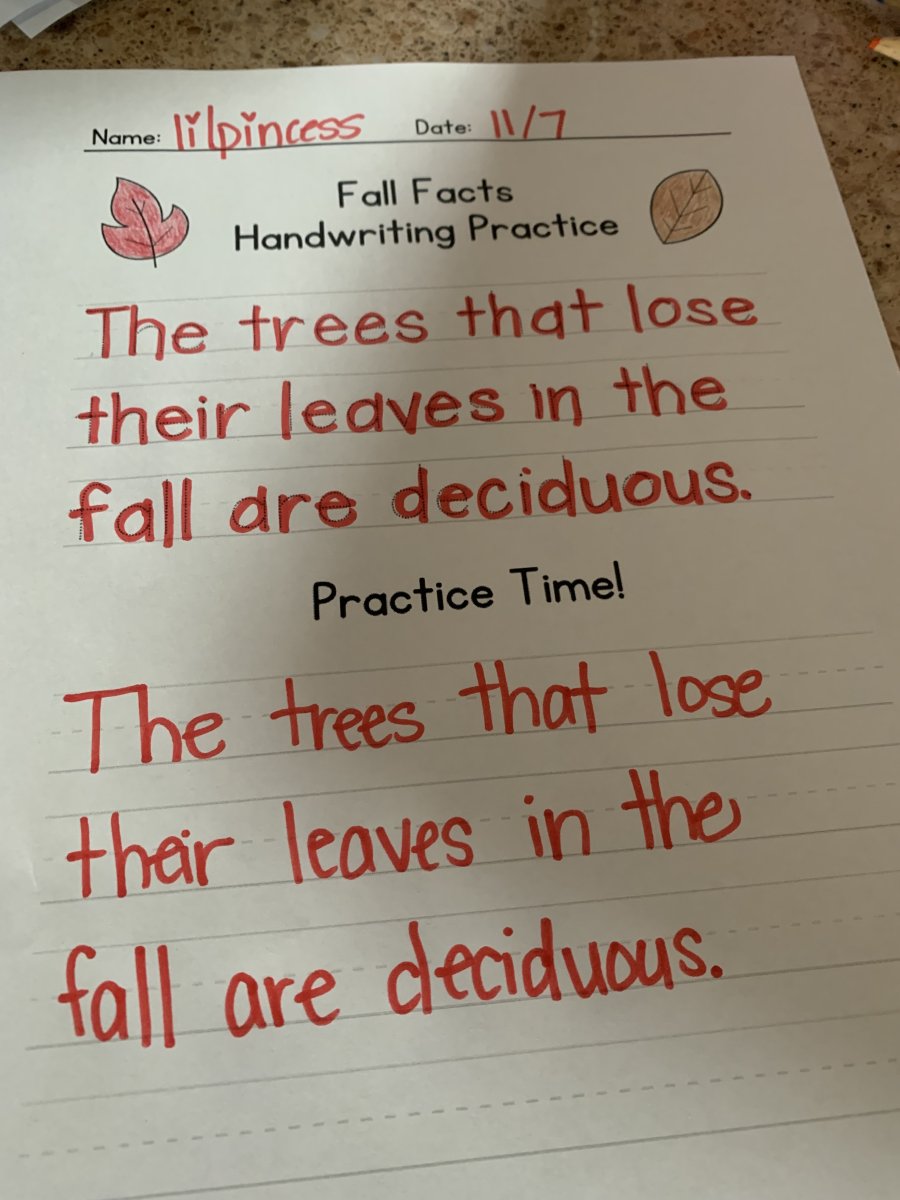 Name: lilpincess Date: 11/7
Fall Facts
Handwriting Practice
The trees that lose
their leaves in the
fall are deciduous.
Practice Time!
The trees that lose
their leaves in the
fall are deciduous.